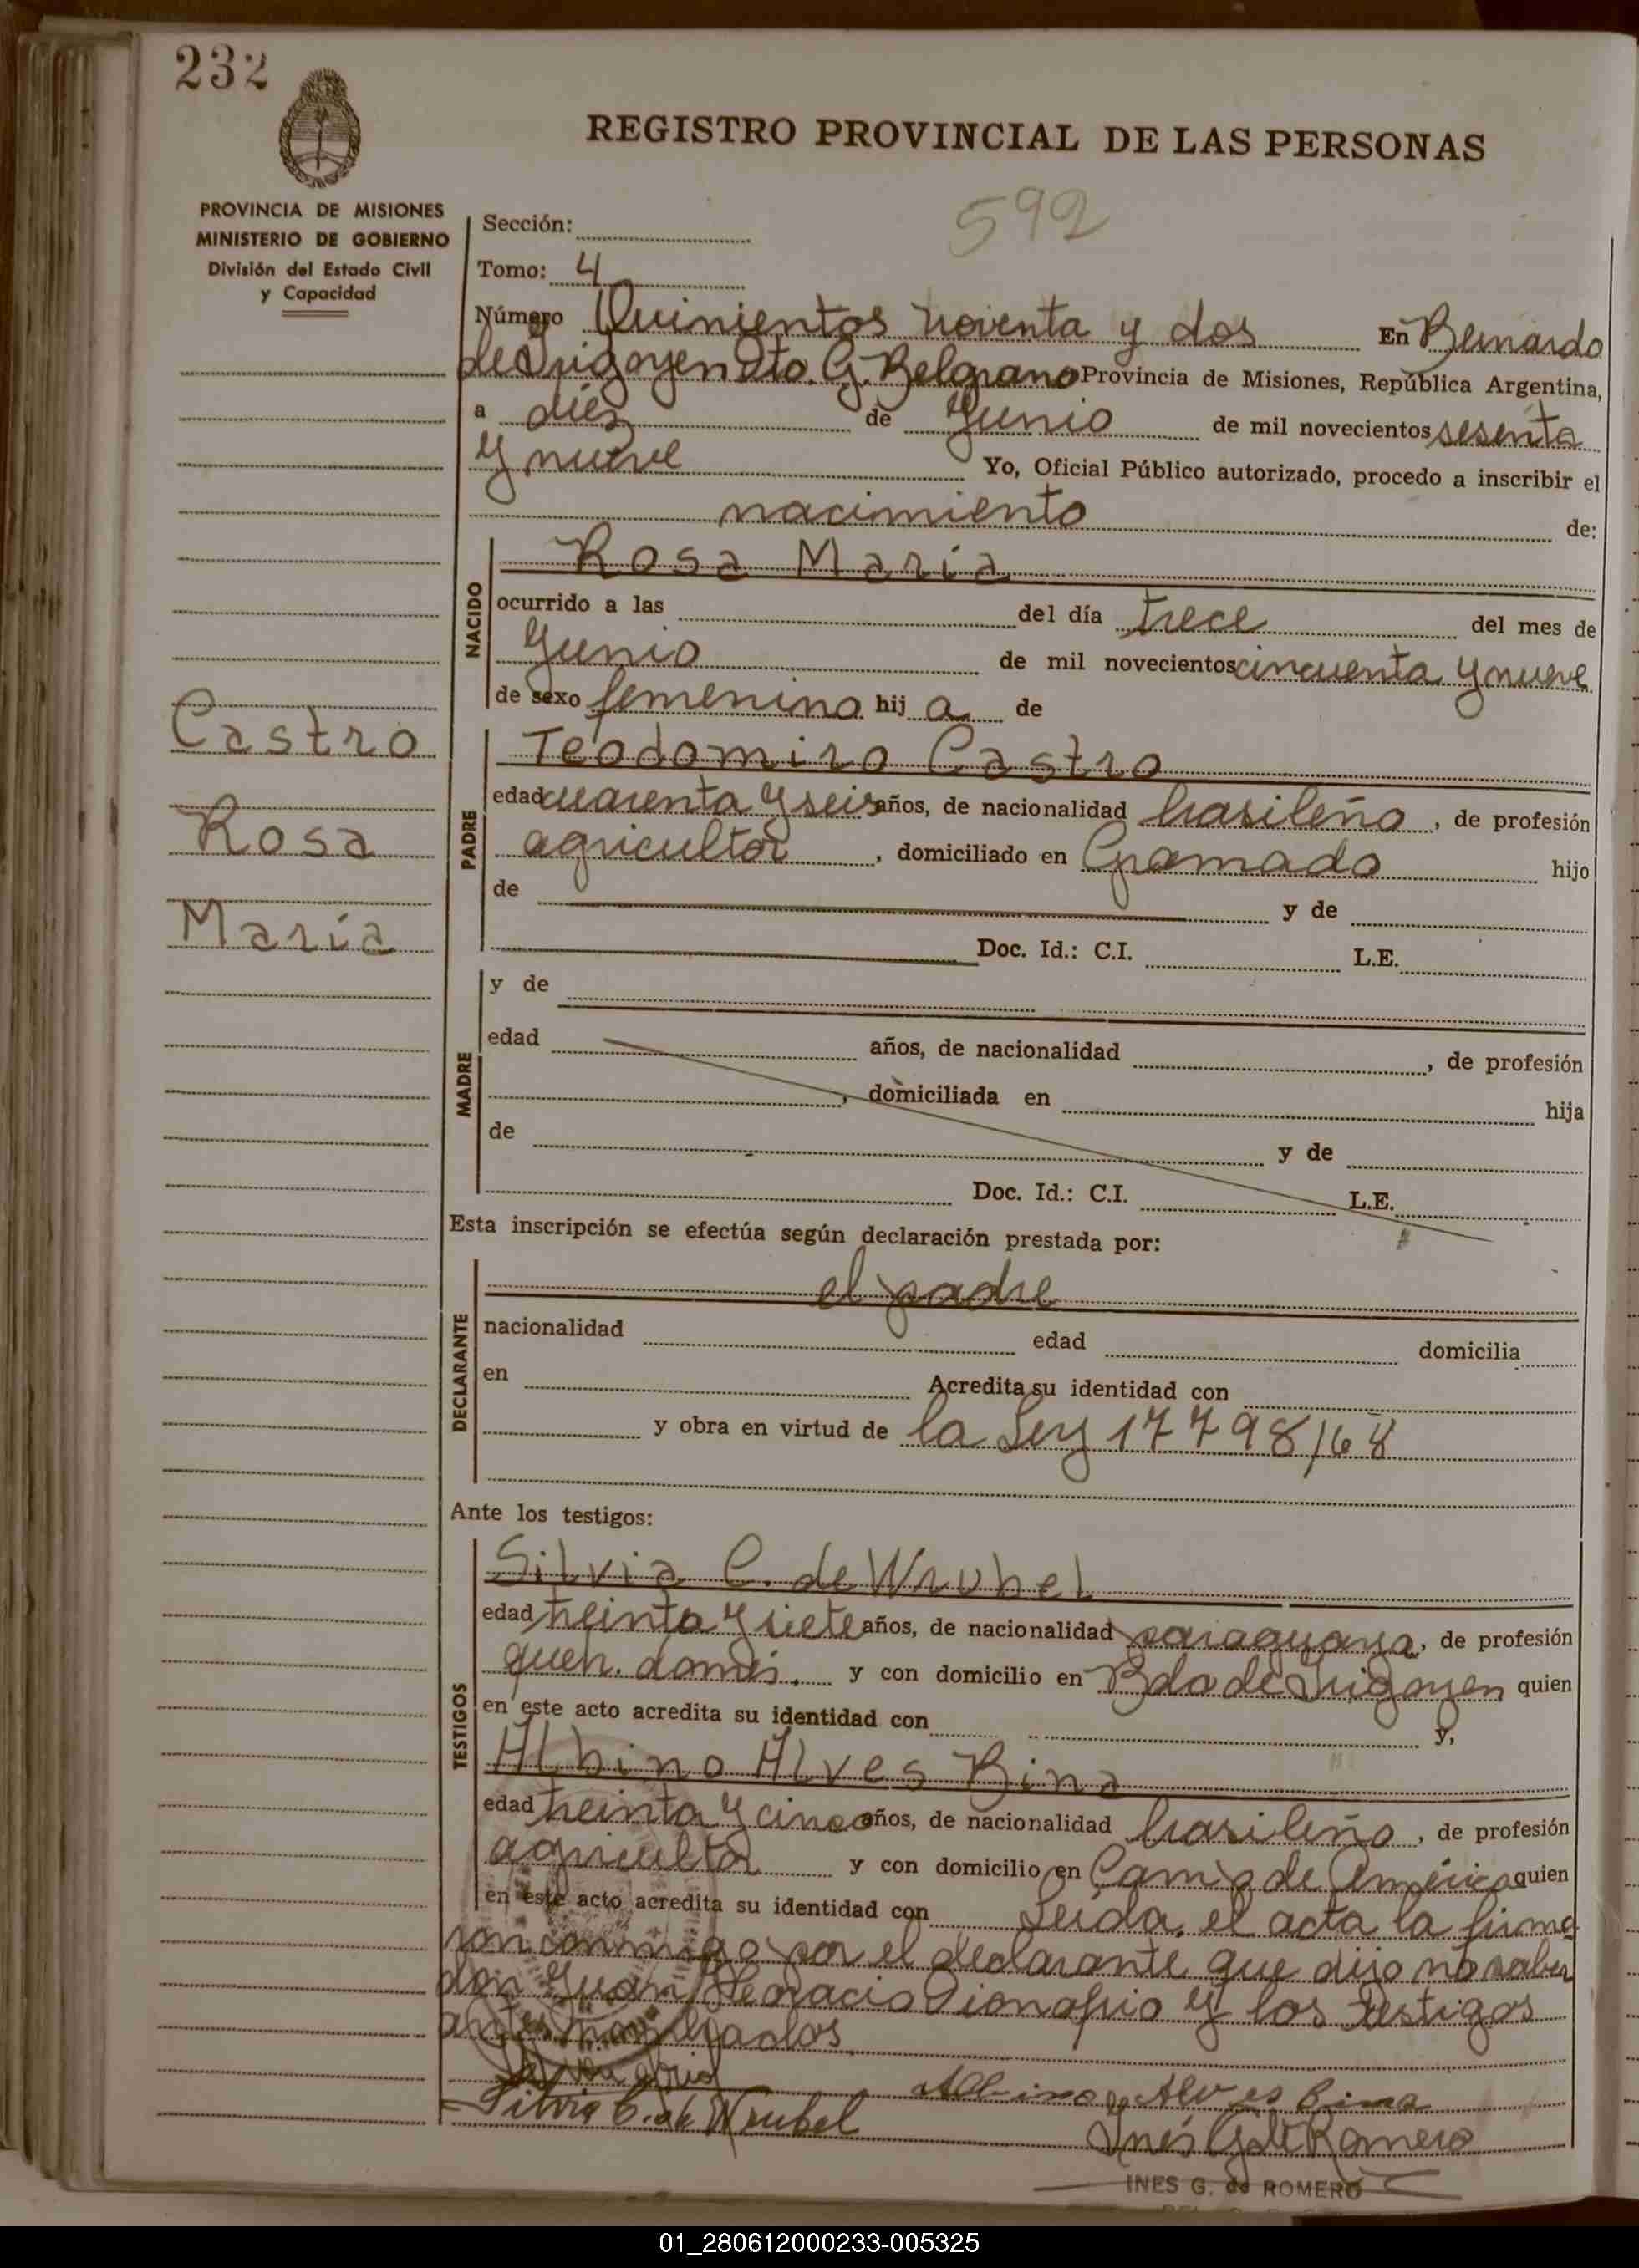 232
REGISTRO PROVINCIAL DE LAS PERSONAS
PROVINCIA DE MISIONES
MINISTERIO DE GOBIERNO
División del Estado Civil
y Capacidad
592
Sección:
Tomo: 4
Número Quinientos noventa y dos En Bernardo
de Irigoyen Dto. G. Belgrano Provincia de Misiones, República Argentina,
a diez de Junio de mil novecientos sesenta
y nueve Yo, Oficial Público autorizado, procedo a inscribir el
nacimiento de:
NACIDO
Rosa María
ocurrido a las del día trece del mes de
Junio de mil novecientos cincuenta y nueve
de sexo femenino hij a de
Castro
Rosa
María
PADRE
Teodomiro Castro
edad cuarenta y seis años, de nacionalidad brasileño, de profesión
agricultor, domiciliado en Gramado hijo
de y de
Doc. Id.: C.I. L.E.
MADRE
y de
edad años, de nacionalidad , de profesión
, domiciliada en hija
de y de
Doc. Id.: C.I. L.E.
Esta inscripción se efectúa según declaración prestada por:
DECLARANTE
el padre
nacionalidad edad domicilia
en Acredita su identidad con
y obra en virtud de la Ley 17798/68
Ante los testigos:
TESTIGOS
Silvia C. de Wrubel
edad treinta y siete años, de nacionalidad paraguaya, de profesión
queh. domés. y con domicilio en Bdo de Irigoyen quien
en este acto acredita su identidad con y,
Albino Alves Bina
edad treinta y cinco años, de nacionalidad brasileño, de profesión
agricultor y con domicilio en de América quien
en este acto acredita su identidad con Leída, el acta la firma
ron conmigo por el declarante que dijo no saber
don Juan y los testigos
Silvia C. de Wrubel
Albino Alves Bina
Inés G. de Romero
INES G. de ROMERO
01_280612000233-005325